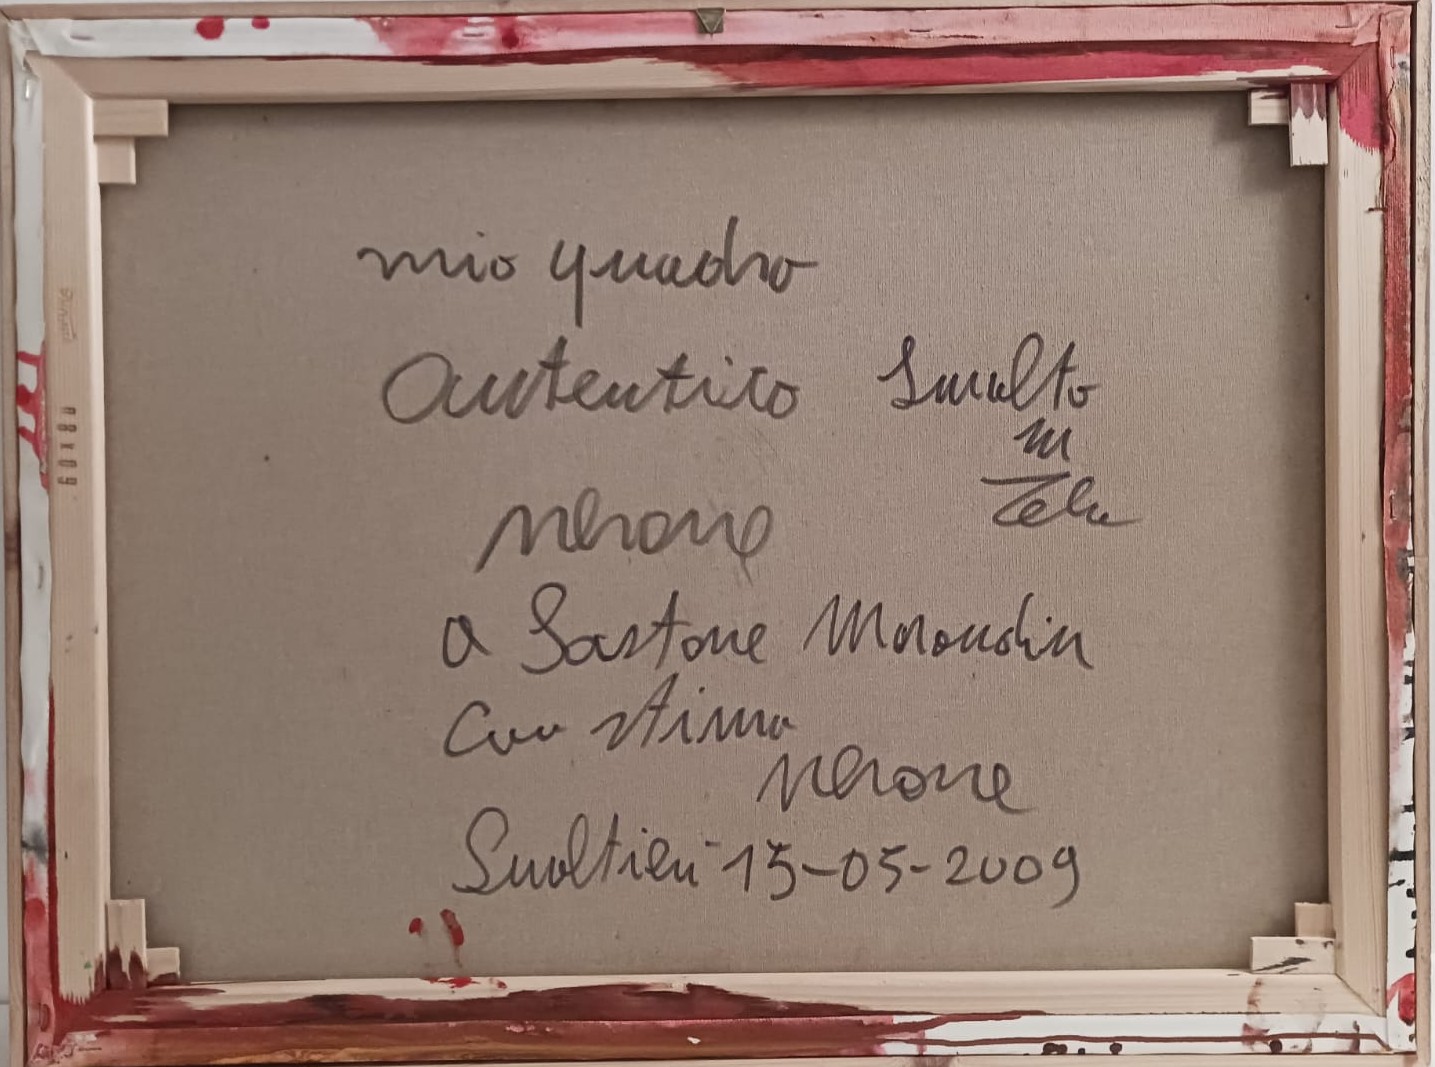 mio quadro
autentico Smalto
su
Tela
Nerone
a Gastone Marandin
con stima
Nerone
Smaltieri 15-05-2009
60x80